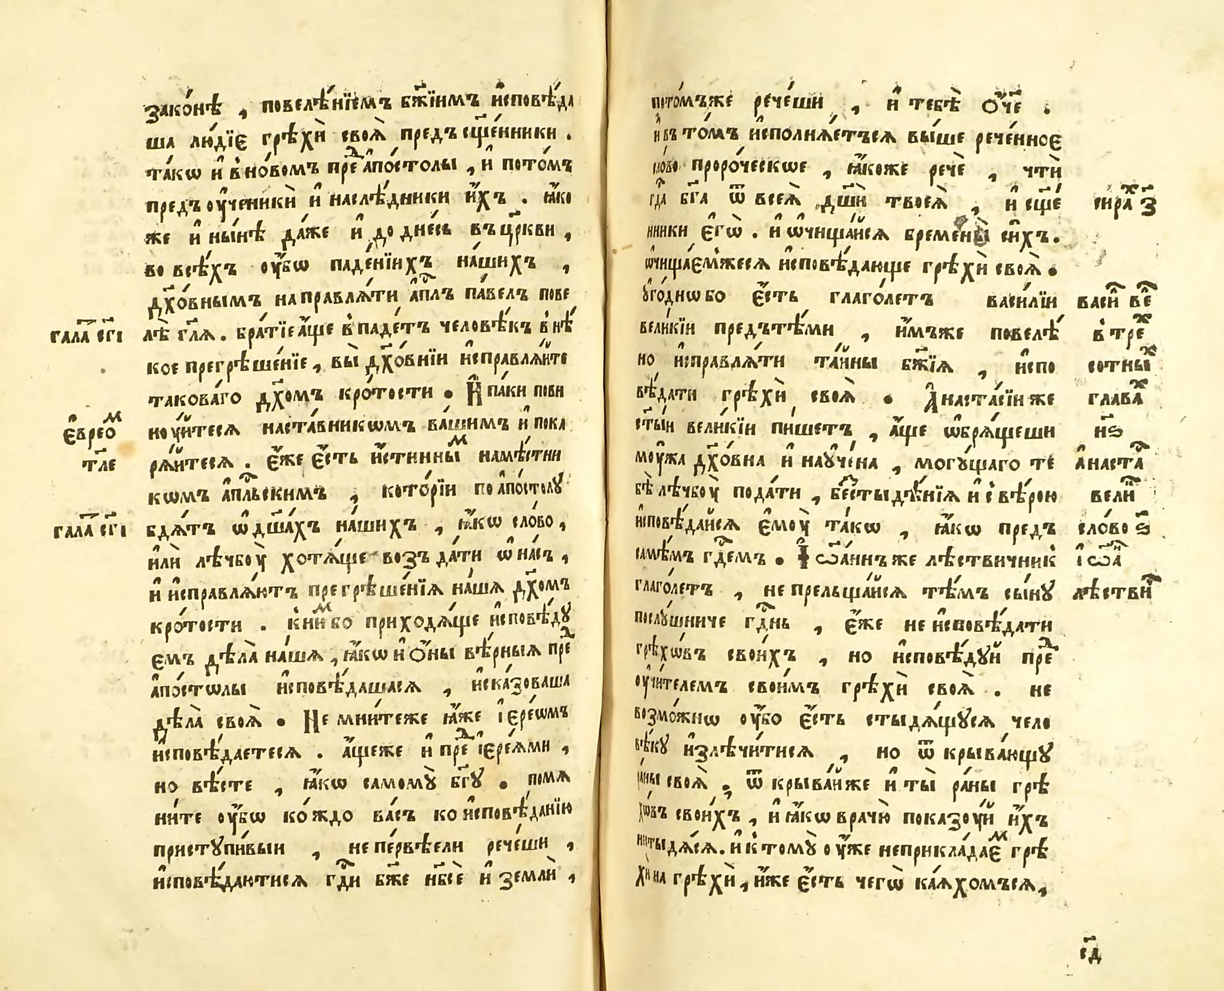 зако́нѣ , повелѣ́нїемъ бж҃їимъ и҆повѣ́да
ша лю́дїе грѣхѝ своѧ̀ предъ сщ҃е́нники .
та́кѡ и҆ в но́вомъ пре а҆по́столы , и҆ пото́мъ
предъ оу҆ченикѝ и҆ наслѣ́дники и҆́хъ . ꙗ҆́ко
же и҆ ны́нѣ да́же и҆ до дне́сь въ цр҃кви ,
во всѣ́хъ оу҆́бѡ паде́нїихъ на́шихъ ,
дх҃о́внымъ на правлѧ́ти а҆пл҃ъ па́велъ пове
лѣ̀ гл҃ѧ . бра́тїе а҆́ще в̾паде́тъ человѣ́къ в нѣ́
кое прегрѣше́нїе , вы̀ дх҃о́внїи и҆справлѧ́йте
такова́го дх҃омъ кро́тости . И҆ па́ки пови
нꙋ́йтесѧ наста́вникѡмъ ва́шимъ и҆ пока
рѧ́йтесѧ . є҆́же є҆́сть и҆́стинны намѣ́стни
кѡмъ а҆пл҃ьскимъ , кото́рїи по а҆по́столꙋ
бдѧ́тъ ѡ҆ дш҃а́хъ на́шихъ , ꙗ҆́кѡ сло́во ,
и҆лѝ лѣчбоу̀ хотѧ́ще возъ да́ти ѡ҆ на́съ ,
и҆ и҆справлѧ́ютъ прегрѣше́нїѧ на́шѧ дх҃омъ
кро́тости . к ни́ бо приходѧ́ще и҆сповѣ́дꙋ
емъ дѣла̀ на́шѧ , ꙗ҆́кѡ и҆ ѻ҆́ны вѣ́рныѧ пре
а҆по́стѡлы и҆сповѣ́дашасѧ , и҆сказоваша
дѣла̀ своѧ̀ . Не мни́теже ꙗ҆́же і҆ере́ѡмъ
и҆сповѣ́даетесѧ . а҆́щеже и҆ пре і҆ере́ѧми ,
но вѣ́сте , ꙗ҆́кѡ самомꙋ̀ бг҃ꙋ . помѧ
ни́те оу҆́бѡ ко́ждо ва́съ ко и҆сповѣ́данїю
пристꙋпи́выи , не пе́рвѣели рече́ши ,
и҆сповѣ́даютисѧ гд҃и бж҃е нб҃се и҆ землѝ ,
гала̀ сг҃і
є҆врео
тл҃е
гала̀ сг҃і
пото́мъже рече́ши , и҆ тебѣ̀ ѻ҆́ч҃е .
и҆ въ то́мъ и҆сполнѧ́етъсѧ вы́ше рече́нное
сло́во проро́ческѡе , ꙗ҆́коже речѐ , чтѝ
гд҃а бг҃а ѿ всеѧ̀ дш҃ѝ твоеѧ̀ , и҆ сщ҃е
нники є҆гѡ̀ . и҆ ѡ҆чища́йсѧ бре́мены си́хъ .
ѡ҆чища́емжесѧ и҆сповѣ́дающе грѣхѝ своѧ̀ .
ᲂу҆го́днѡ бо є҆́сть глаго́летъ васи́лїи
вели́кїи предътѣ́ми , и҆́мъже повелѣ́
но и҆справлѧ́ти та́йны бж҃їѧ , и҆спо
вѣ́дати грѣхѝ своѧ̀ . А҆наста́сїи же
ст҃ы́и вели́кїи пи́шетъ , а҆́ще ѡ҆брѧ́щеши
мꙋ́жа дх҃о́вна и҆ наꙋче́на , могꙋ́щаго те
бѣ̀ лѣчбоу̀ пода́ти , бестыдѣ́нїѧ и҆ с вѣ́рою
и҆сповѣ́дайсѧ є҆моу̀ та́кѡ , ꙗ҆́кѡ предъ
самѣ́мъ гд҃емъ . І҆ѡа́ннъ же лѣ́ствичник
глаго́летъ , не прельща́йсѧ тѣ́мъ сы́нꙋ
послꙋ́шниче гд҃нь , є҆́же не и҆сповѣ́дати
грѣхѡ́въ свои́хъ , но и҆сповѣ́дꙋй пре
оу҆чи́телемъ свои́мъ грѣхѝ своѧ̀ . не
возмо́жнѡ оу҆́бо є҆́сть стыдѧ́щꙋсѧ чело
вѣ́кꙋ и҆злѣчи́тисѧ , но ѿ крыва́ющꙋ
ра́ны своѧ̀ . ѿ крыва́йже и҆ ты̀ ра́ны грѣ
хо́въ свои́хъ , и҆ ꙗ҆́кѡ врачю̀ показоуй и҆́хъ
нистыдѧ́сѧ . и҆ к томꙋ̀ оу҆́же неприклада́е грѣ
хи на грѣхѝ , и҆́же є҆́сть чегѡ̀ ка́ѧхомъсѧ ,
сира з҃
васи ве
в тре
сотны
глава
и҃ѕ
а҆наста
вели
сло́во ѕ҃
і҆ѡа
лѣстви
с҃д